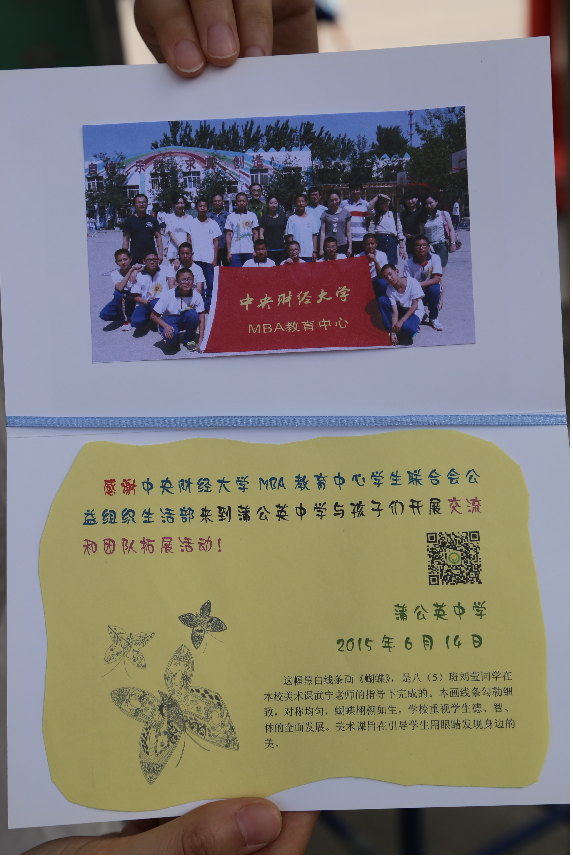 中央财经大学
MBA教育中心
感谢中央财经大学MBA教育中心学生联合会公
益组织生活部来到蒲公英中学与孩子们开展交流
和团队拓展活动！
蒲公英中学
2015年6月14日
这幅黑白线条画《蝴蝶》，是八（5）班刘莹同学在
本校美术课武宁老师的指导下完成的。本画线条勾勒细
致，对称均匀，蝴蝶栩栩如生。学校重视学生德、智、
体的全面发展。美术课旨在引导学生用眼睛发现身边的
美。